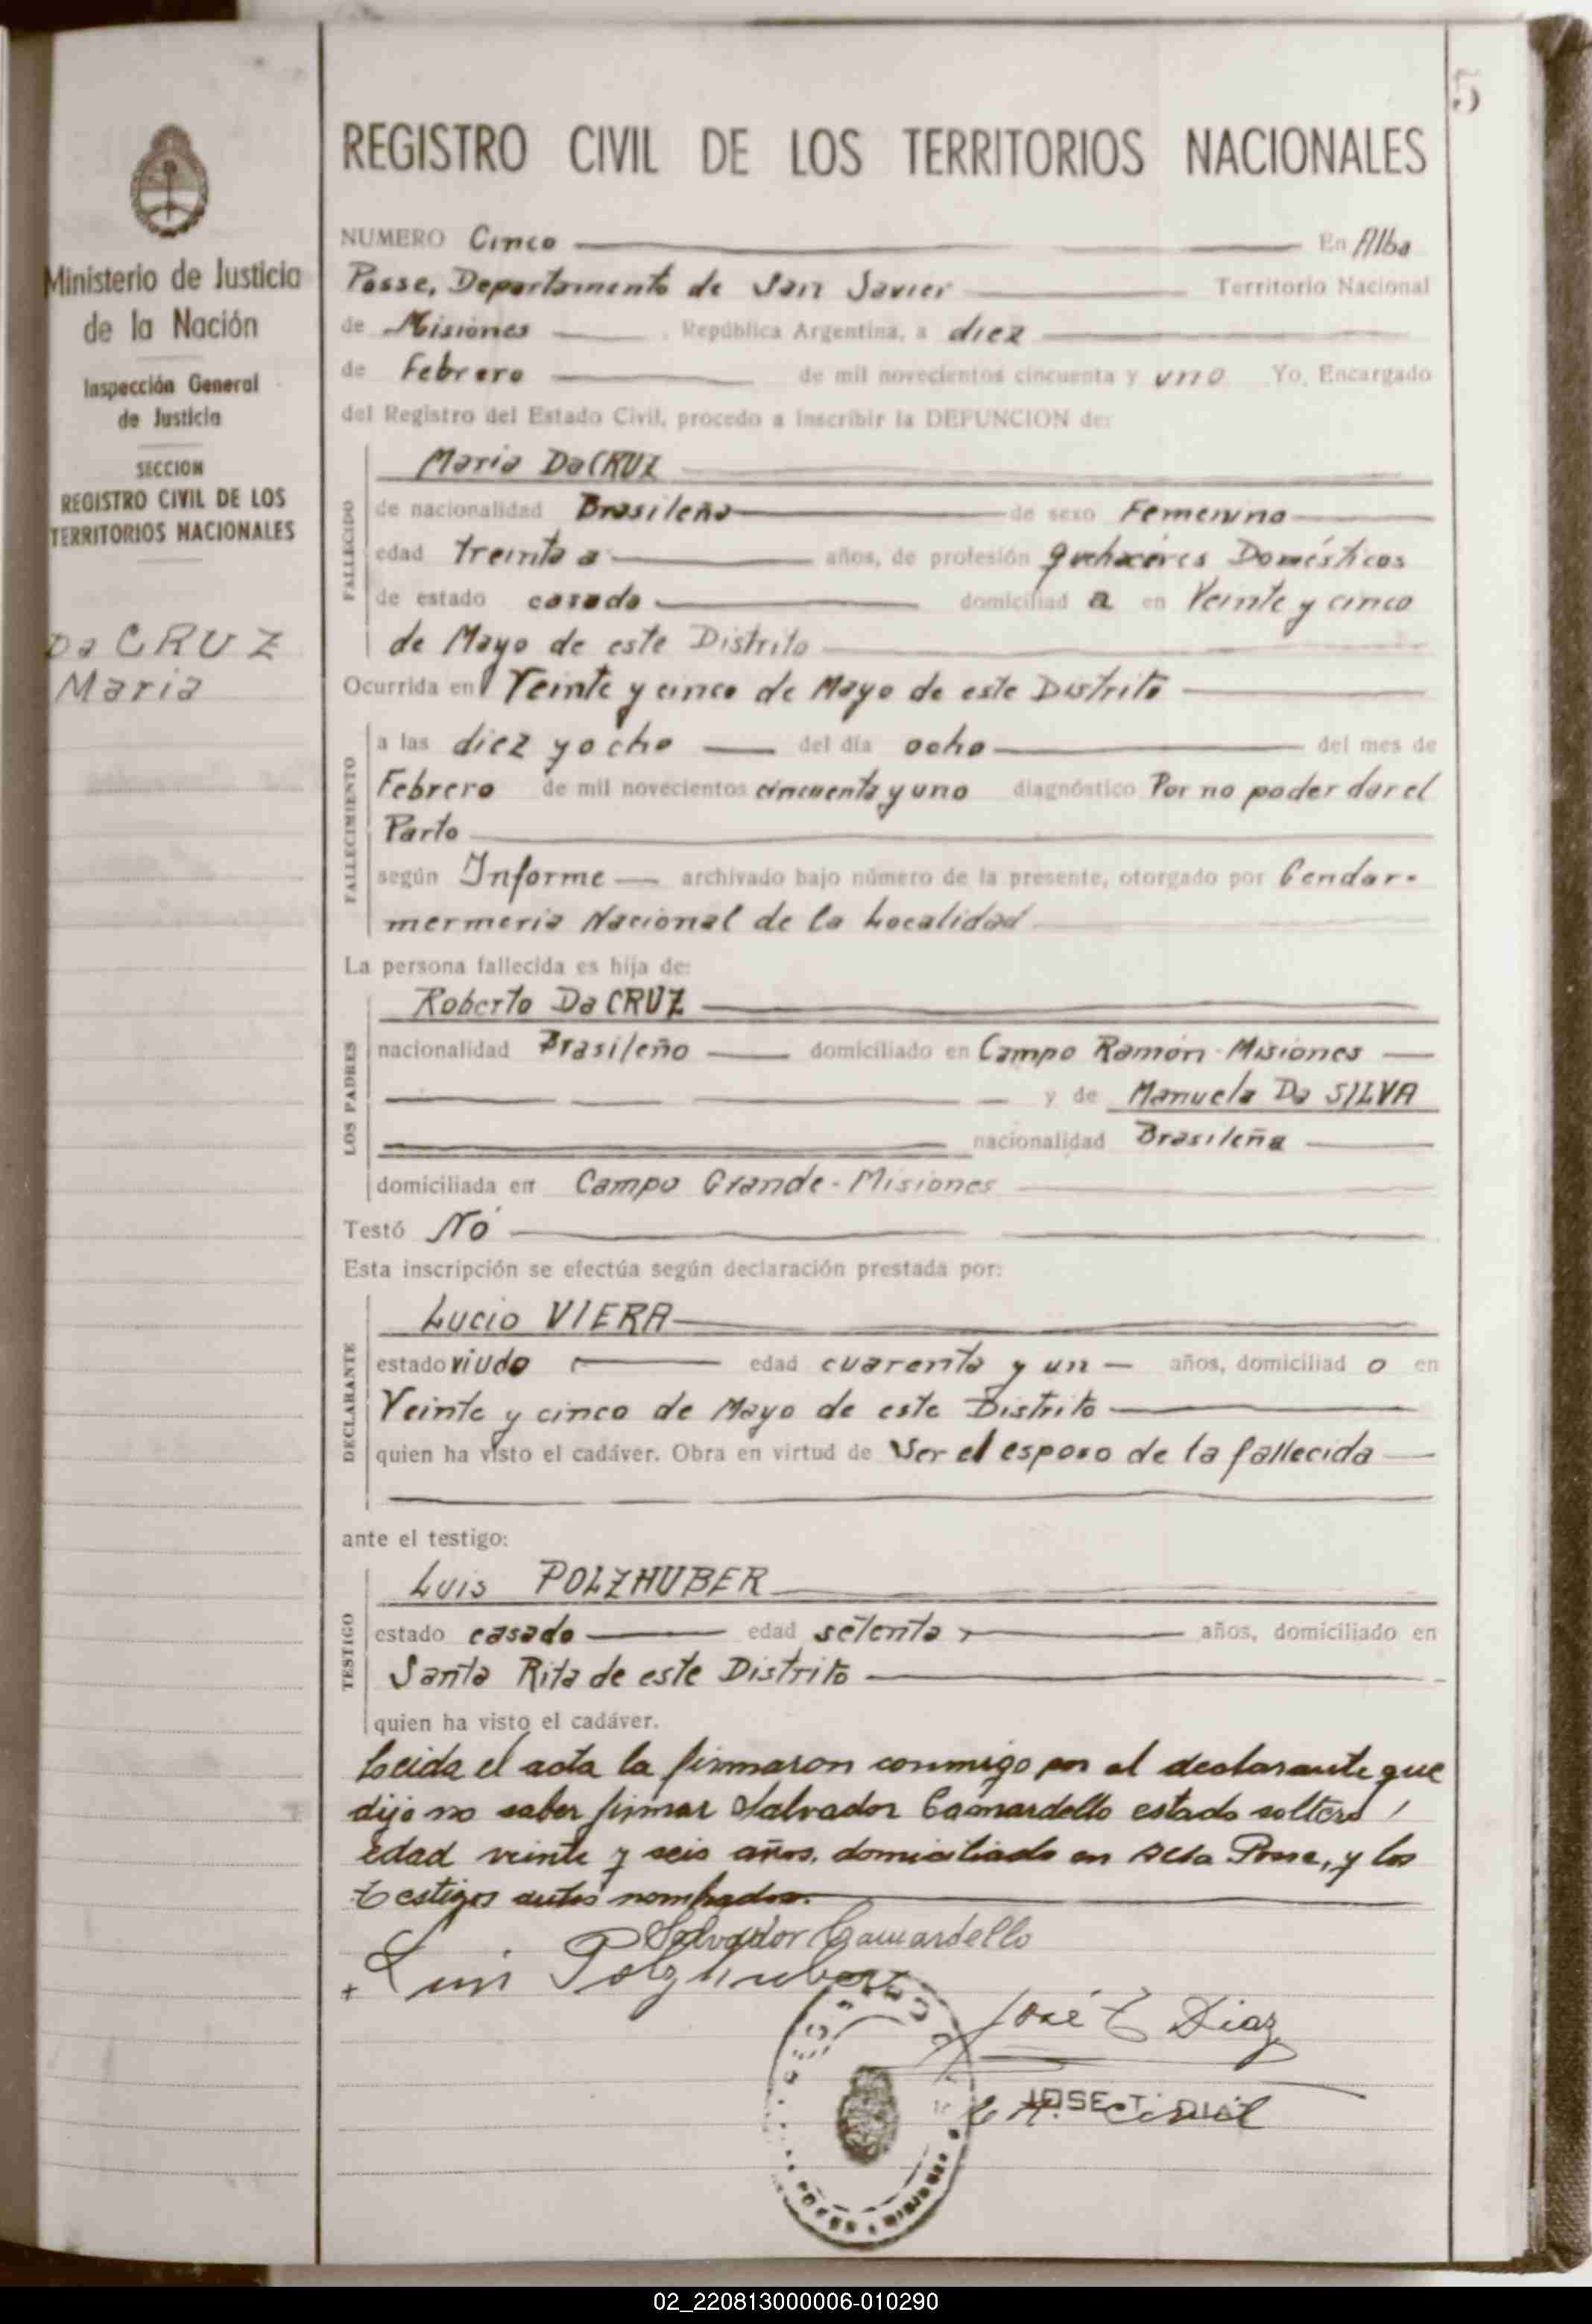 5
REGISTRO CIVIL DE LOS TERRITORIOS NACIONALES
Ministerio de Justicia
de la Nación
Inspección General
de Justicia
SECCION
REGISTRO CIVIL DE LOS
TERRITORIOS NACIONALES
Da CRUZ
Maria
NUMERO Cinco En Alba
Posse, Departamento de San Javier Territorio Nacional
de Misiones . República Argentina, a diez
de Febrero de mil novecientos cincuenta y uno Yo, Encargado
del Registro del Estado Civil, procedo a inscribir la DEFUNCION de:
FALLECIDO
Maria DaCRUZ
de nacionalidad Brasileña de sexo Femenino
edad treinta a años, de profesión quehaceres Domésticos
de estado casada domiciliad a en Veinte y cinco
de Mayo de este Distrito
Ocurrida en Veinte y cinco de Mayo de este Distrito
FALLECIMIENTO
a las diez y ocho del día ocho del mes de
Febrero de mil novecientos cincuenta y uno diagnóstico Por no poder dar el
Parto
según Informe archivado bajo número de la presente, otorgado por Gendar-
mermeria Nacional de la Localidad
La persona fallecida es hija de:
LOS PADRES
Roberto Da CRUZ
nacionalidad Brasileño domiciliado en Campo Ramón - Misiones
y de Manuela Da SILVA
nacionalidad Brasileña
domiciliada en Campo Grande - Misiones
Testó No
Esta inscripción se efectúa según declaración prestada por:
DECLARANTE
Lucio VIERA
estado viudo edad cuarenta y un años, domiciliad o en
Veinte y cinco de Mayo de este Distrito
quien ha visto el cadáver. Obra en virtud de Ser el esposo de la fallecida
ante el testigo:
TESTIGO
Luis POLZHUBER
estado casado edad setenta años, domiciliado en
Santa Rita de este Distrito
quien ha visto el cadáver.
Leida el acta la firmaron conmigo por el declarante que
dijo no saber firmar Salvador Camardello estado soltero
edad veinte y seis años, domiciliado en Alba Posse, y los
testigos antes nombrados.
Salvador Camardello
+ Luis Polzhuber
José T Diaz
JOSE T. DIAZ
02_220813000006-010290